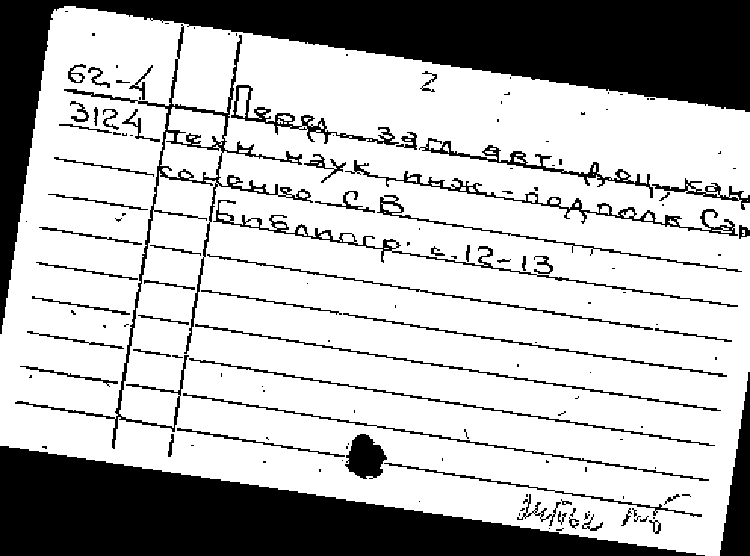 2
62-4
3124
Перед загл. авт.: доц., кан
техн. наук, инж.-подполк. Сар
соненко С.В.
Библиогр.: с. 12-13